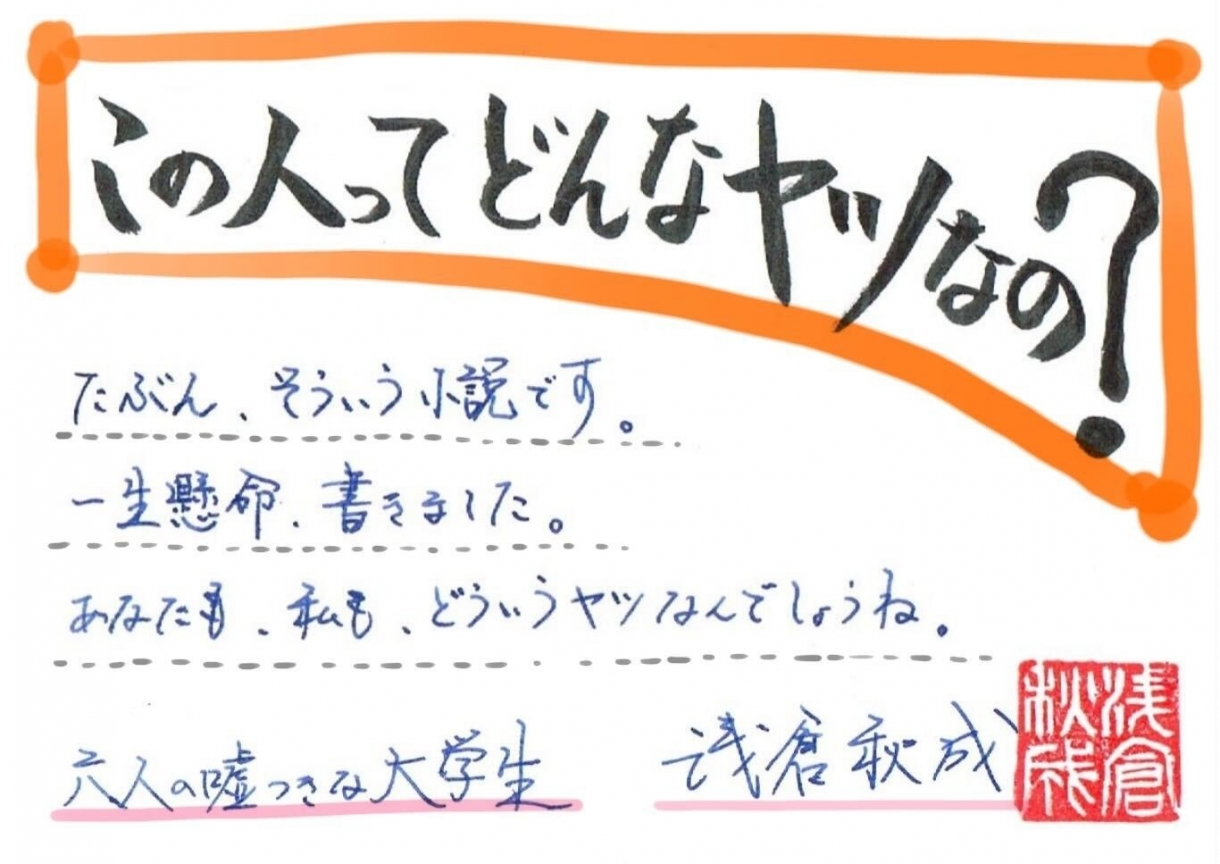 この人ってどんなヤツなの?
たぶん、そういう小説です。
一生懸命、書きました。
あなたも、私も、どういうヤツなんでしょうね。
六人の嘘つきな大学生
浅倉秋成
浅倉秋成